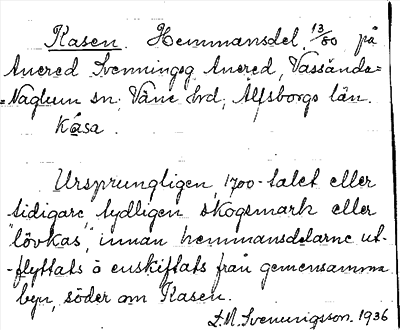 Kasen. Hemmansdel, 13/80 på
Anered Svenningsg Anered, Vassända=
=Naglum sn, Väne hrd, Älfsborgs län.
Kåsa.
Ursprungligen, 1700-talet eller
tidigare, tydligen skogsmark eller
"lövkas", innan hemmansdelarne ut-
-flyttats o enskiftats från gemensamma
byn, söder om Kasen.
L.M. Svenningsson. 1936